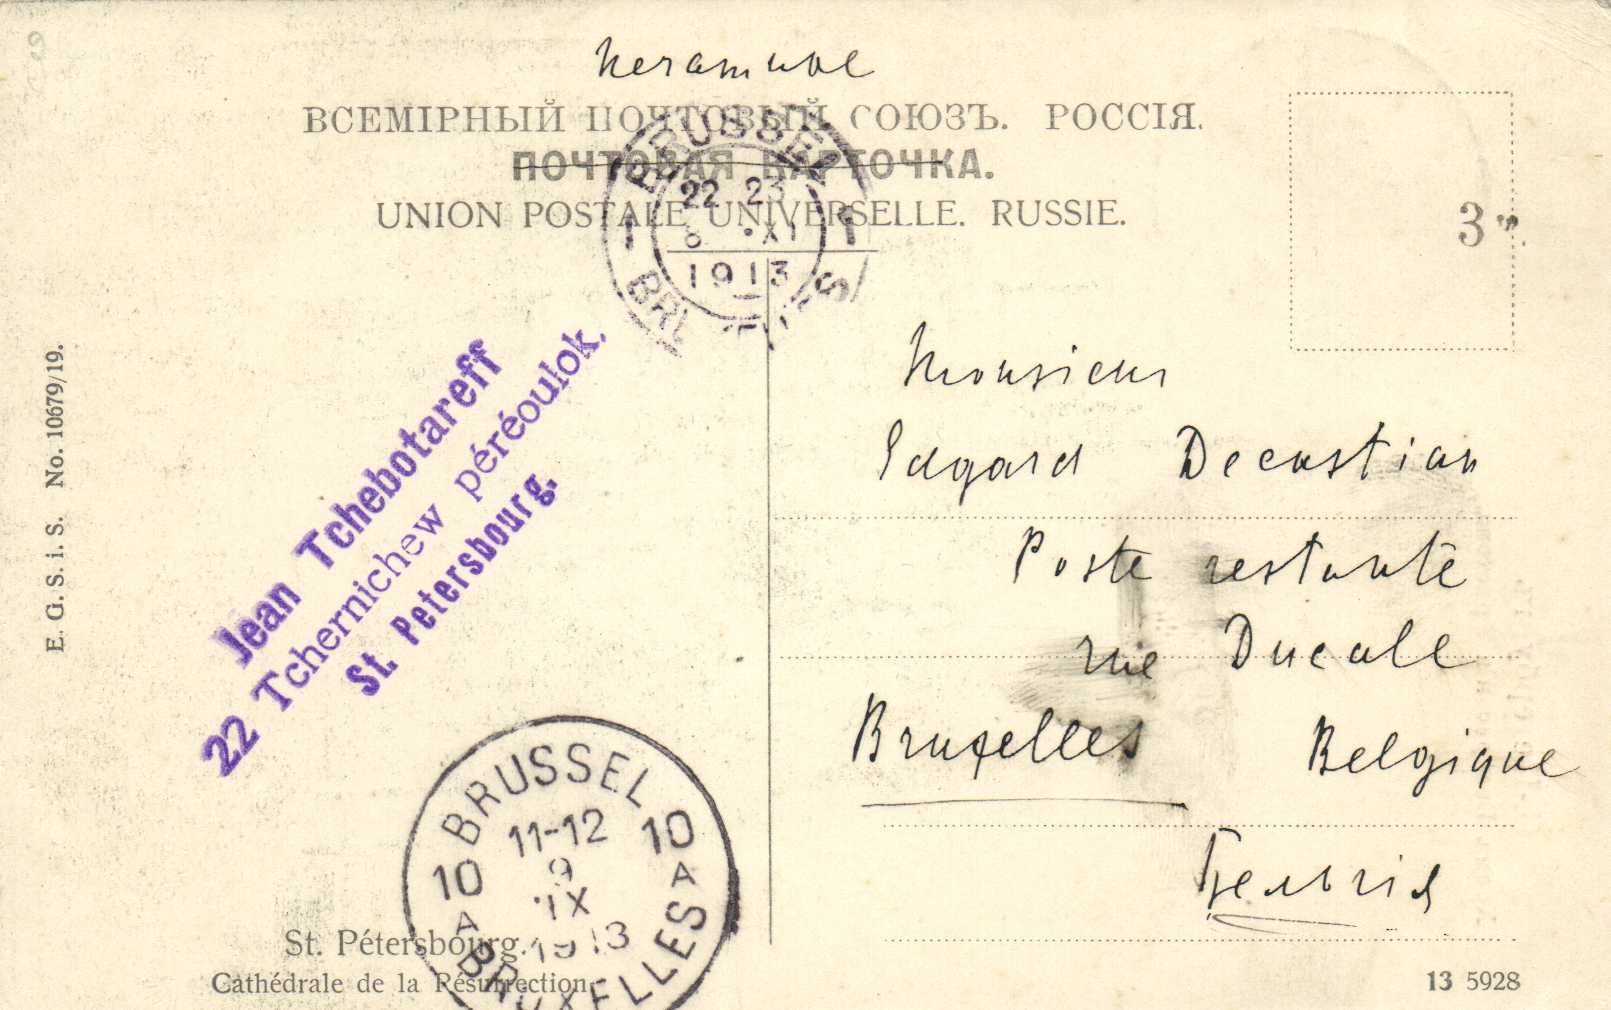 Печатное
ВСЕМІРНЫЙ ПОЧТОВЫЙ СОЮЗЪ. РОССІЯ.
ПОЧТОВАЯ КАРТОЧКА.
UNION POSTALE UNIVERSELLE. RUSSIE.
BRUSSEL
1 22 23 1
8 •XI
1913
3
E. G. S. i. S. No. 10679/19.
Jean Tchebotareff
22 Tchernichew péréoulok.
St. Petersbourg.
Monsieur
Edgard
Poste restante
rue Ducale
Bruxelles Belgique
Бельгія
BRUSSEL
11-12
10 10
9
IX
A A
1913
BRUXELLES
St. Pétersbourg.
Cathédrale de la Résurrection.
13 5928